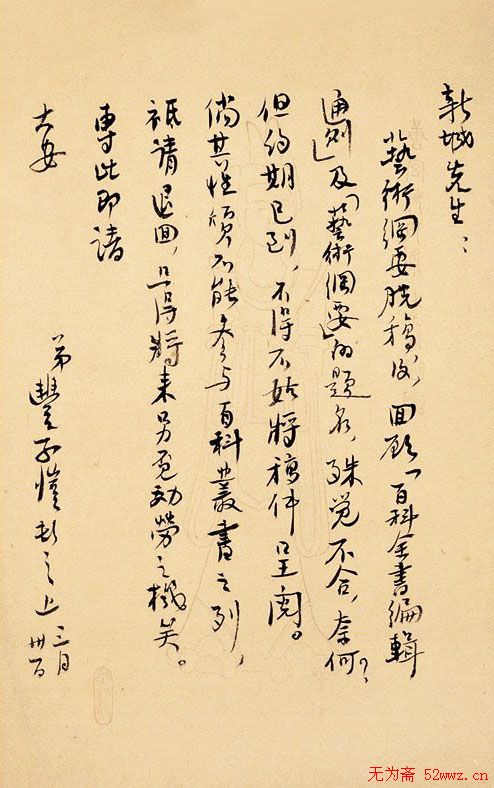 新城先生：
藝術綱要脱稿後，回顧「百科全書編輯
通则」及「藝術綱要」的題名，殊觉不合，奈何？
但约期已到，不得不姑將稿件呈阅。
倘其性質不能参与百科叢書之列，
祇請退回，且待將来另觅効勞之機矣。
專此即請
大安
弟豐子愷頓上 三月卅一日
无为斋 52wwz.cn